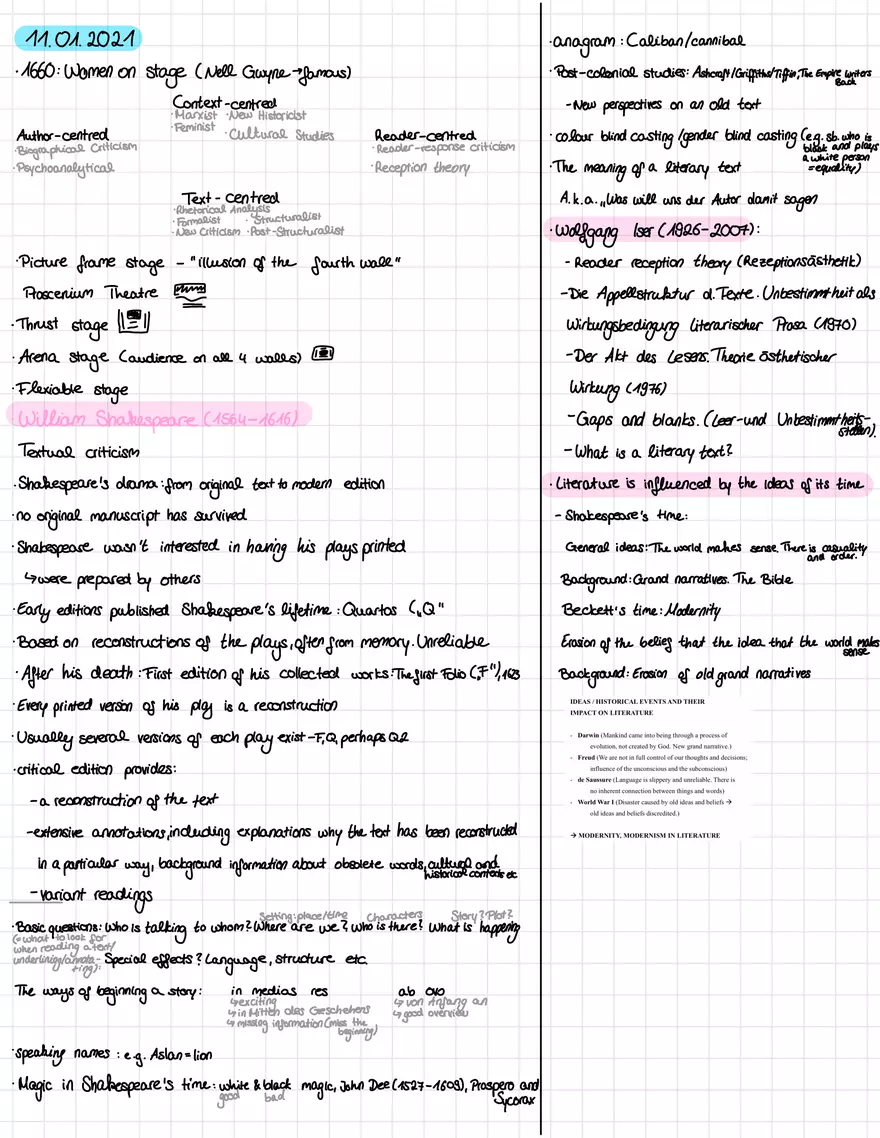 11.01.2021
· 1660: Women on stage (Nell Gwyne → famous)
Context-centred
· Marxist · New Historicist
· Feminist · Cultural Studies
Author-centred
· Biographical Criticism
· Psychoanalytical
Reader-centred
· Reader-response criticism
· Reception theory
Text-centred
· Rhetorical Analysis
· Formalist · Structuralist
· New Criticism · Post-Structuralist
· Picture frame stage – "illusion of the fourth wall"
Proscenium Theatre
· Thrust stage
· Arena stage (audience on all 4 walls)
· Flexiable stage
William Shakespeare (1564–1616)
Textual criticism
· Shakespeare's drama: from original text to modern edition
· no original manuscript has survived
· Shakespeare wasn't interested in having his plays printed
↳ were prepared by others
· Early editions published Shakespeare's lifetime: Quartos („Q"
· Based on reconstructions of the plays, often from memory. Unreliable
· After his death: First edition of his collected works: The first Folio („F"), 1623
· Every printed version of his play is a reconstruction
· Usually several versions of each play exist – F, Q, perhaps Q2
· critical edition provides:
– a reconstruction of the text
– extensive annotations, including explanations why the text has been reconstructed
in a particular way, background information about obsolete words, cultural and
historical contexts etc
– variant readings
Setting: place/time Characters Story? Plot?
· Basic questions: Who is talking to whom? Where are we? Who is there? What is happening
(= what to look for
when reading a text/
underlining/annota-
ting):
Special effects? Language, structure etc.
The ways of beginning a story: in medias res ab ovo
↳ exciting ↳ von Anfang an
↳ in Mitten des Geschehens ↳ good overview
↳ missing information (miss the
beginning)
· speaking names: e.g. Aslan = lion
· Magic in Shakespeare's time: white & black magic, John Dee (1527–1609), Prospero and
good bad Sycorax
· anagram: Caliban/cannibal
· Post-colonial studies: Ashcroft/Griffiths/Tiffin, The Empire Writers
Back
– New perspectives on an old text
· colour blind casting/gender blind casting (e.g. sb. who is
black and plays
a white person
= equality)
· The meaning of a literary text
A.k.a. „Was will uns der Autor damit sagen
· Wolfgang Iser (1926–2007):
– Reader reception theory (Rezeptionsästhetik)
– Die Appellstruktur d. Texte. Unbestimmtheit als
Wirkungsbedingung literarischer Prosa (1970)
– Der Akt des Lesens. Theorie ästhetischer
Wirkung (1976)
– Gaps and blanks. (Leer- und Unbestimmtheits-
stellen).
– What is a literary text?
· Literature is influenced by the ideas of its time
– Shakespeare's time:
General ideas: The world makes sense. There is casuality
and order.
Background: Grand narratives. The Bible
Beckett's time: Modernity
Erosion of the belief that the idea that the world makes
sense
Background: Erosion of old grand narratives
IDEAS / HISTORICAL EVENTS AND THEIR
IMPACT ON LITERATURE
- Darwin (Mankind came into being through a process of
evolution, not created by God. New grand narrative.)
- Freud (We are not in full control of our thoughts and decisions;
influence of the unconscious and the subconscious)
- de Saussure (Language is slippery and unreliable. There is
no inherent connection between things and words)
- World War I (Disaster caused by old ideas and beliefs →
old ideas and beliefs discredited.)
→ MODERNITY, MODERNISM IN LITERATURE